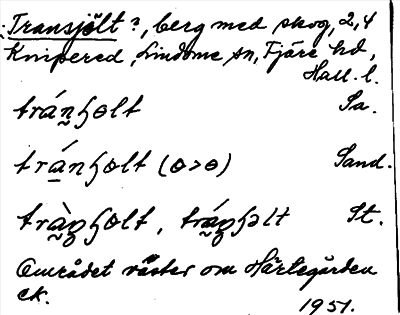 Transjölt ?, berg med skog, 2,4
Knipered, Lindome sn, Fjäre hd,
Hall. l.
trán̰ɧɵlt Sa.
trá̱nɧɵlt (ɵ>ɵ) Sand.
trà̰n̰ɧɵlt, trá̰n̰ɧəlt St.
Området väster om Härtegården
ek. 1951.